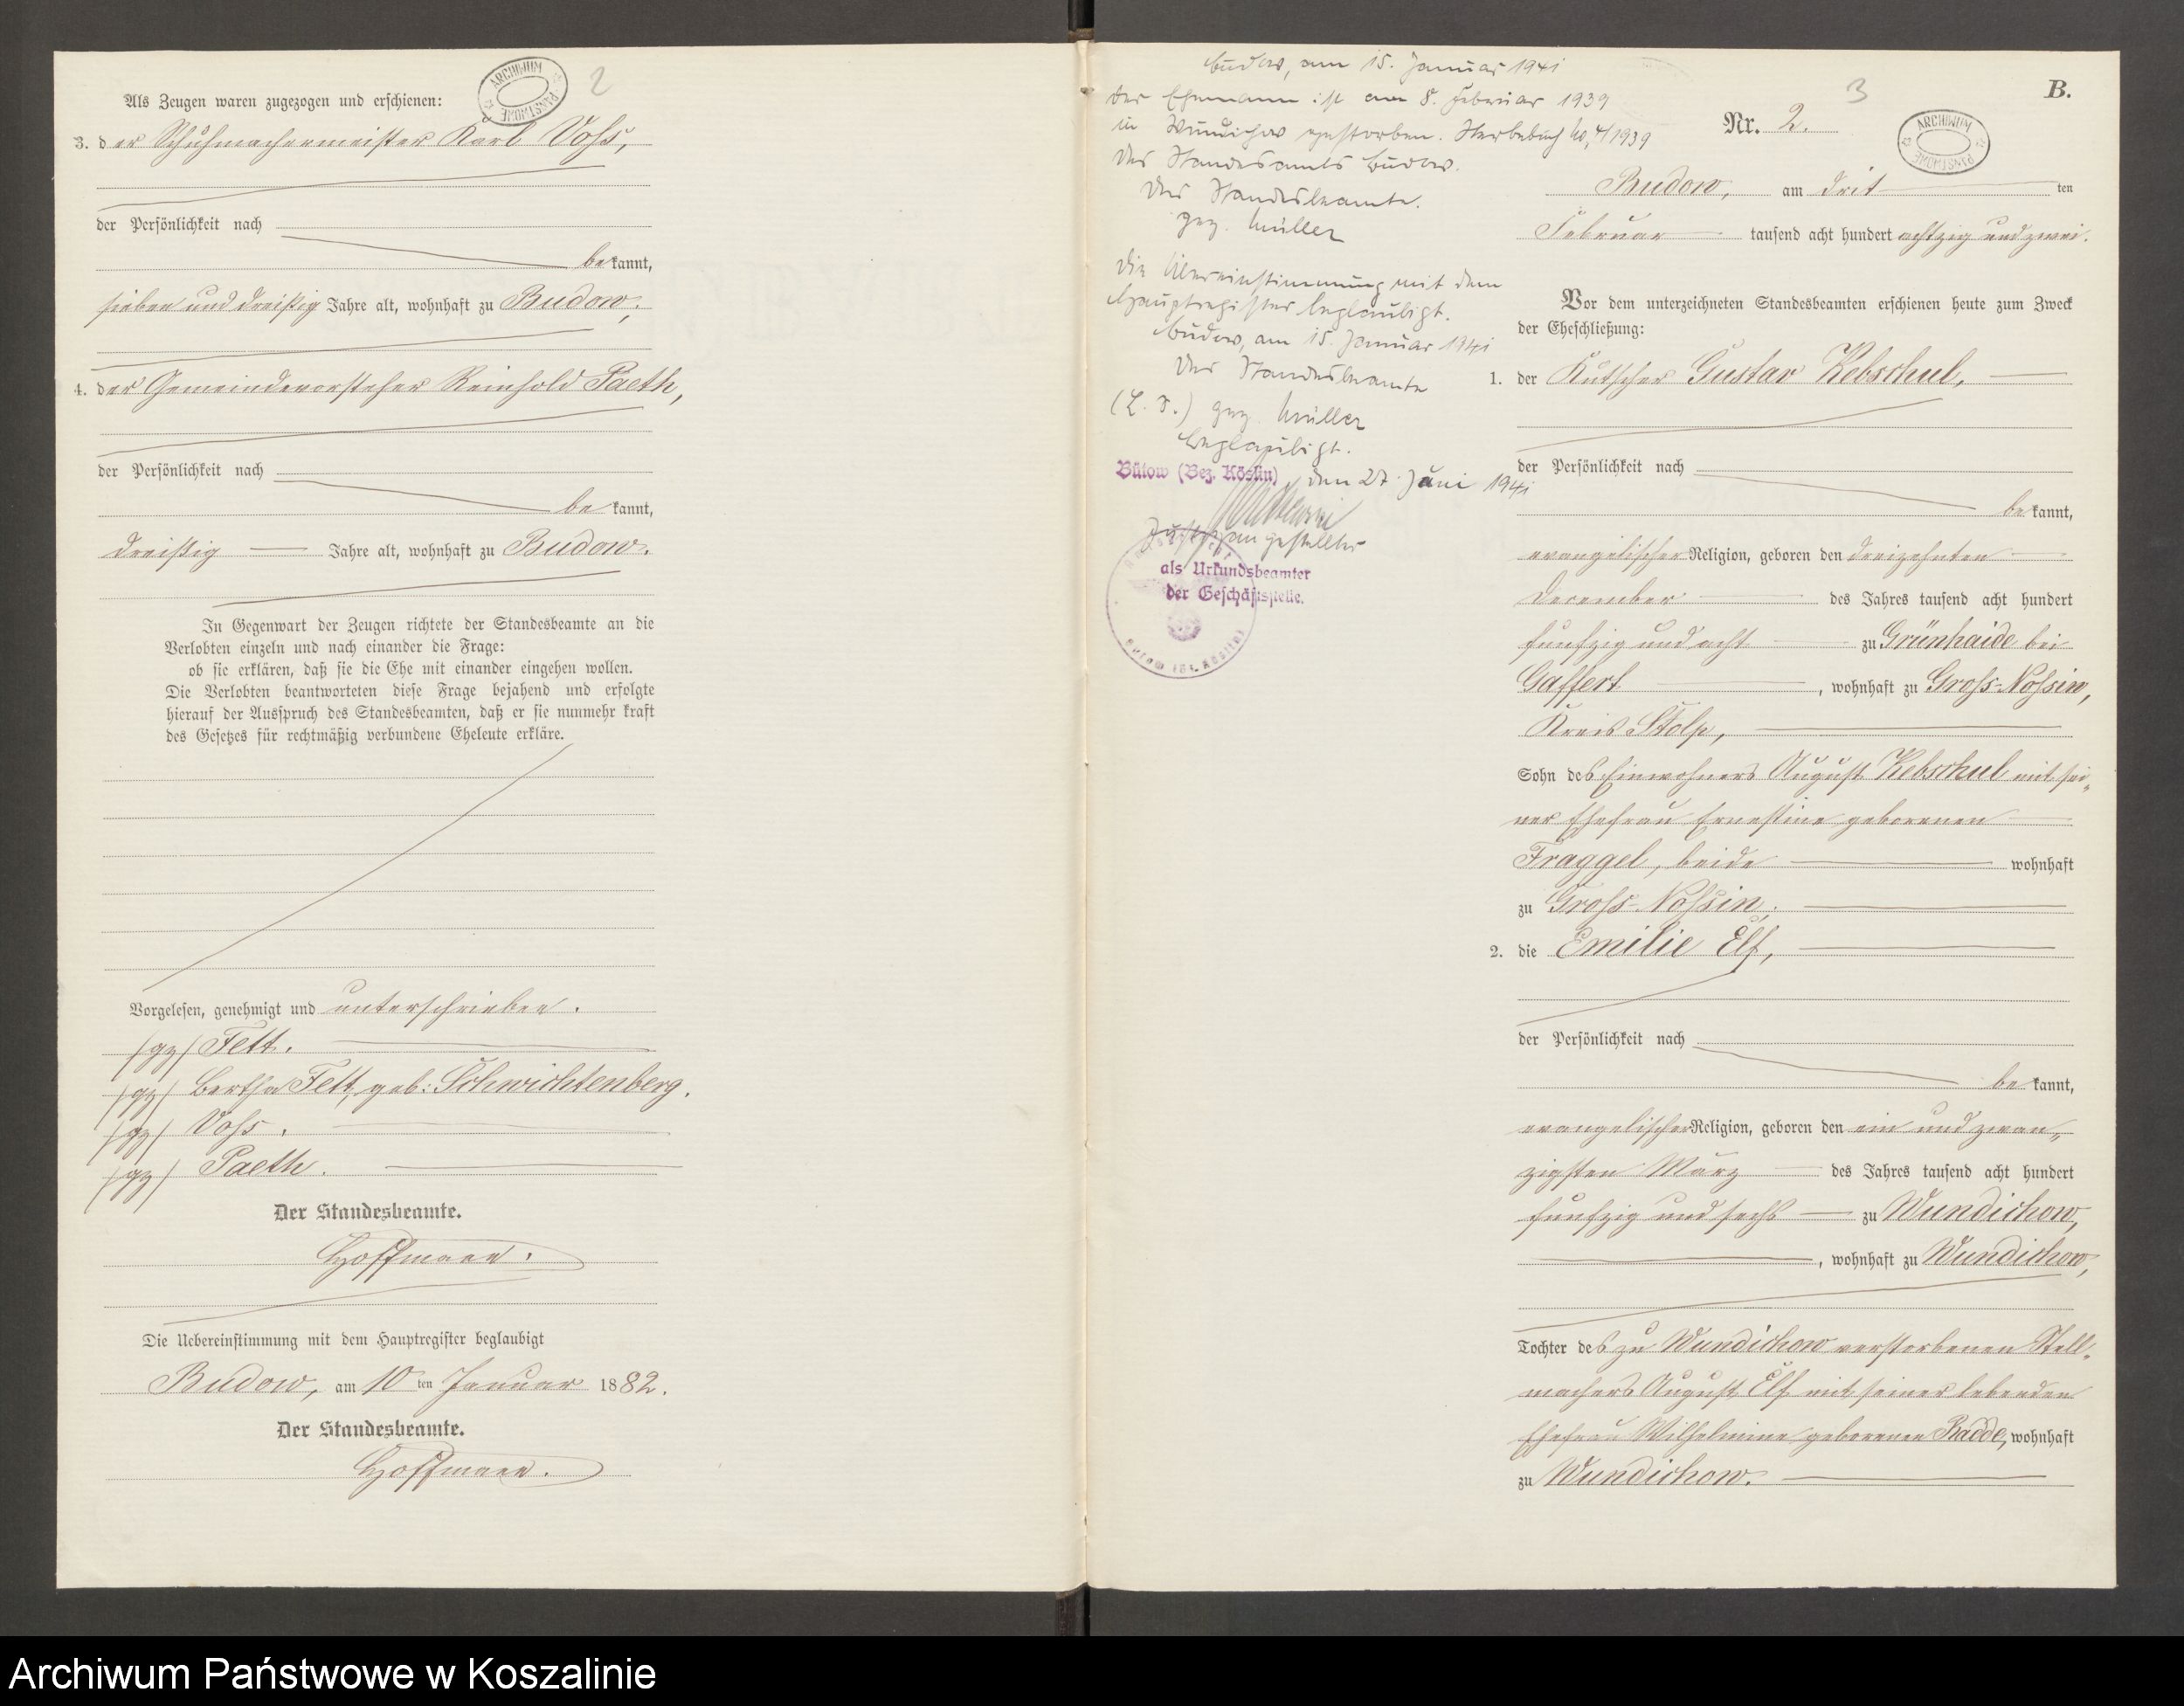 2
ARCHIWUM PAŃSTWOWE
Als Zeugen waren zugezogen und erschienen:
3. der Schuhmachermeister Karl Voß,
der Persönlichkeit nach
bekannt,
sieben und dreißig Jahre alt, wohnhaft zu Budow;
4. der Gemeindevorsteher Reinhold Paeth,
der Persönlichkeit nach
bekannt,
dreißig Jahre alt, wohnhaft zu Budow.
In Gegenwart der Zeugen richtete der Standesbeamte an die
Verlobten einzeln und nach einander die Frage:
ob sie erklären, daß sie die Ehe mit einander eingehen wollen.
Die Verlobten beantworteten diese Frage bejahend und erfolgte
hierauf der Ausspruch des Standesbeamten, daß er sie nunmehr kraft
des Gesetzes für rechtmäßig verbundene Eheleute erkläre.
Vorgelesen, genehmigt und unterschrieben.
(gz) Fett.
(gz) Bertha Fett, geb: Schwichtenberg.
(gz) Voß.
(gz) Paeth.
Der Standesbeamte.
Hoffmann.
Die Uebereinstimmung mit dem Hauptregister beglaubigt
Budow, am 10ten Januar 1882.
Der Standesbeamte.
Hoffmann.
Budow, am 15. Januar 1941
Der Ehemann ist am 8. Februar 1939
in Wundichow gestorben. Sterbebuch No 4/1939
des Standesamts Budow.
Der Standesbeamte.
gez. Müller
Die Übereinstimmung mit dem
Hauptregister beglaubigt.
Budow, am 15. Januar 1941
Der Standesbeamte
(L. S.) gez. Müller
Beglaubigt.
Bütow (Bez. Köslin), den 27. Juni 1941
Justizangestellter
als Urkundsbeamter
der Geschäftsstelle.
3
B.
Nr. 2.
ARCHIWUM PAŃSTWOWE
Budow, am drit ten
Februar tausend acht hundert achtzig und zwei.
Vor dem unterzeichneten Standesbeamten erschienen heute zum Zweck
der Eheschließung:
1. der Kutscher Gustav Kebschul,
der Persönlichkeit nach
bekannt,
evangelischer Religion, geboren den dreizehnten
December des Jahres tausend acht hundert
funfzig und acht zu Grünhaide bei
Gaffert, wohnhaft zu Groß-Noßin,
Kreis Stolp,
Sohn des Einwohners August Kebschul mit sei-
ner Ehefrau Ernestine geborenen
Fraggel, beide wohnhaft
zu Groß-Noßin;
2. die Emilie Elf,
der Persönlichkeit nach
bekannt,
evangelischer Religion, geboren den ein und zwan-
zigsten März des Jahres tausend acht hundert
funfzig und sechs zu Wundichow,
, wohnhaft zu Wundichow,
Tochter des zu Wundichow verstorbenen Stell-
machers August Elf mit seiner lebenden
Ehefrau Wilhelmine geborenen Radde, wohnhaft
zu Wundichow.
Archiwum Państwowe w Koszalinie